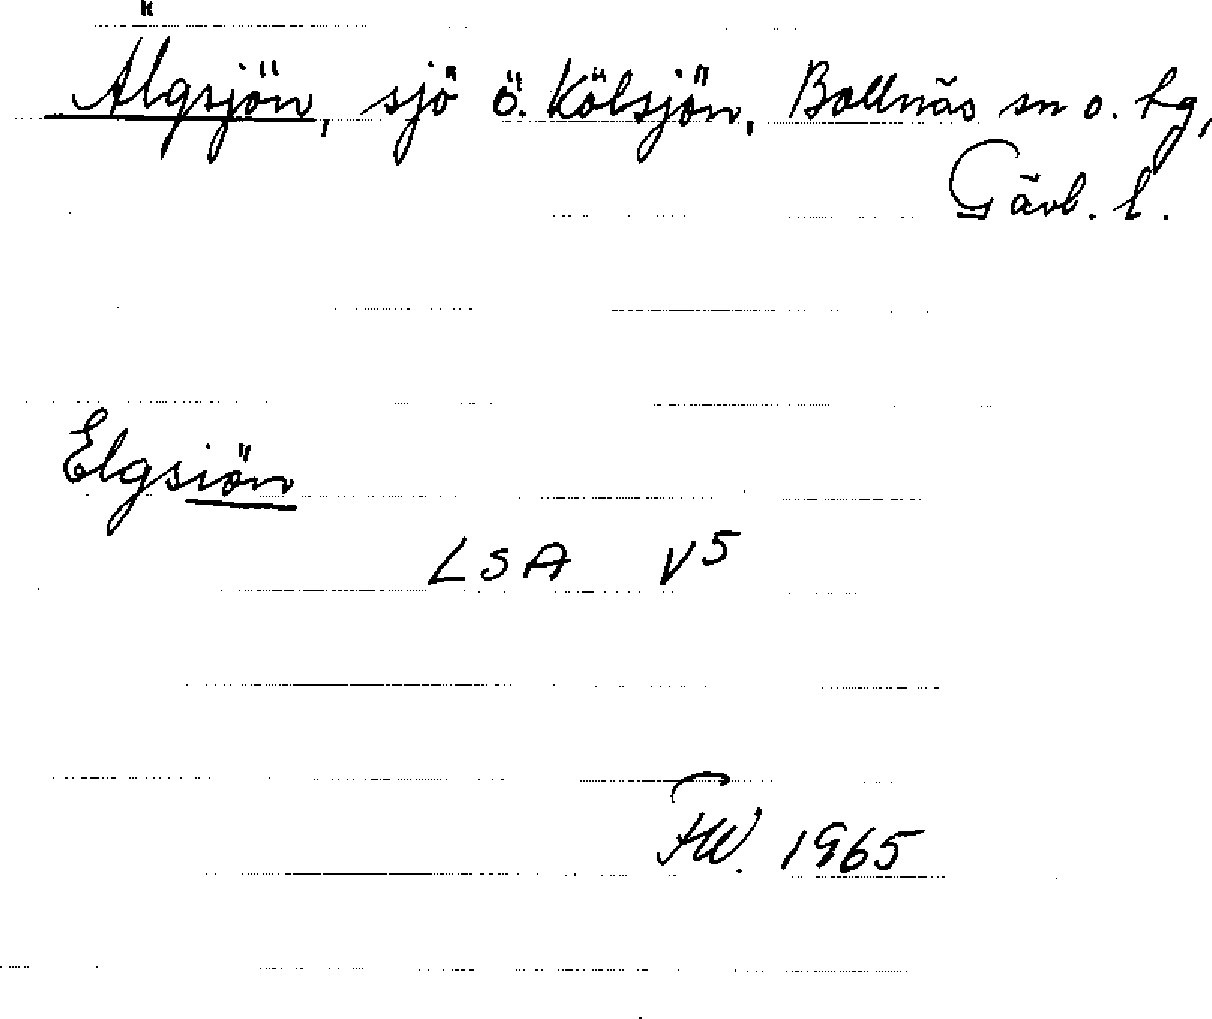 Älgsjön, sjö ö. Kölsjön, Bollnäs sn o. tg,
Gävl. l.
Elgsiön
LSA V5
FW. 1965